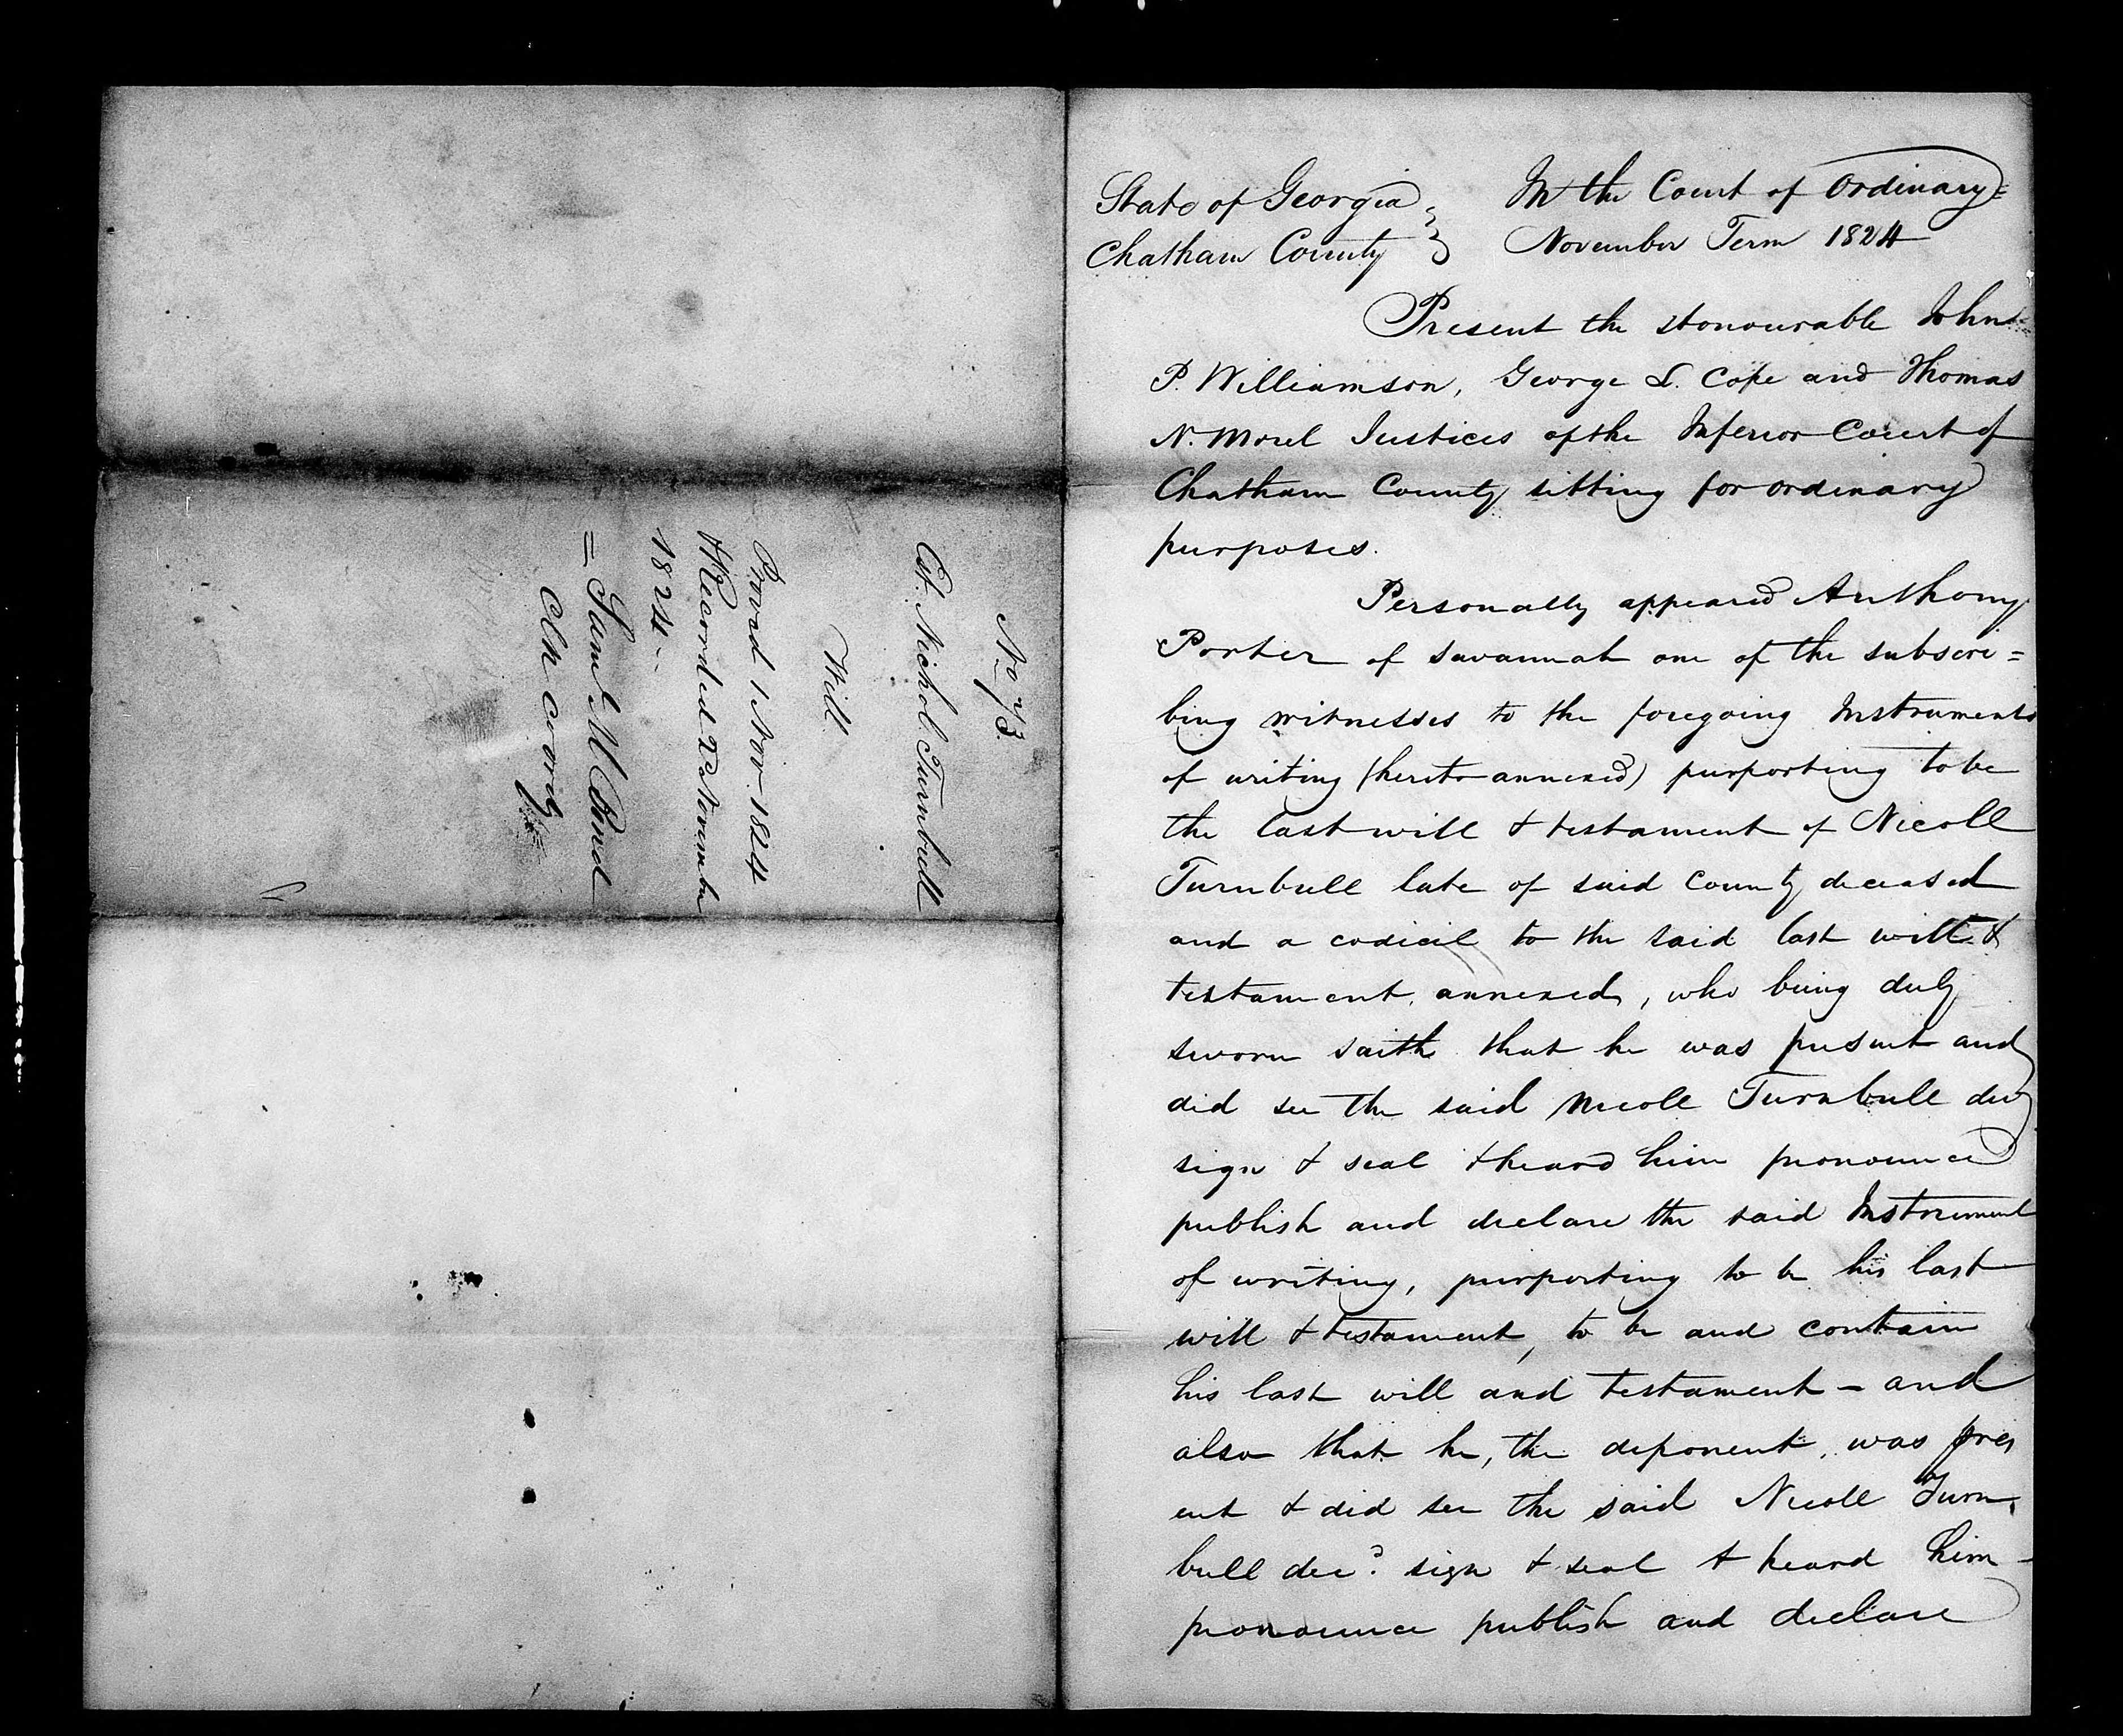 No 73.
Est. Nichol. Turnbull
Will
Proved 1 Nov. 1824
& Recorded 2d November
1824
= Sam M Bond
Clk co ordy =
State of Georgia
Chatham County
In the Court of Ordinary =
November Term 1824
Present the Honourable John
P. Williamson, George L. Cope and Thomas
N. Morel Justices of the Inferior Court of
Chatham County sitting for ordinary
purposes.
Personally appeared Anthony
Porter of Savannah one of the subscri=
bing witnesses to the foregoing Instruments
of writing (hereto annexed) purporting to be
the last will & testament of Nicoll
Turnbull late of said County deceased
and a codicil to the said last will &
testament, annexed, who being duly
sworn saith that he was present and
did see the said Nicoll Turnbull duly
sign & seal & heard him pronounce
publish and declare the said Instrument
of writing, purporting to be his last
will & testament, to be and contain
his last will and testament - and
also that he, the deponent, was pres
ent & did see the said Nicoll Turn,
bull decd. sign & seal & heard him
pronounce publish and declare